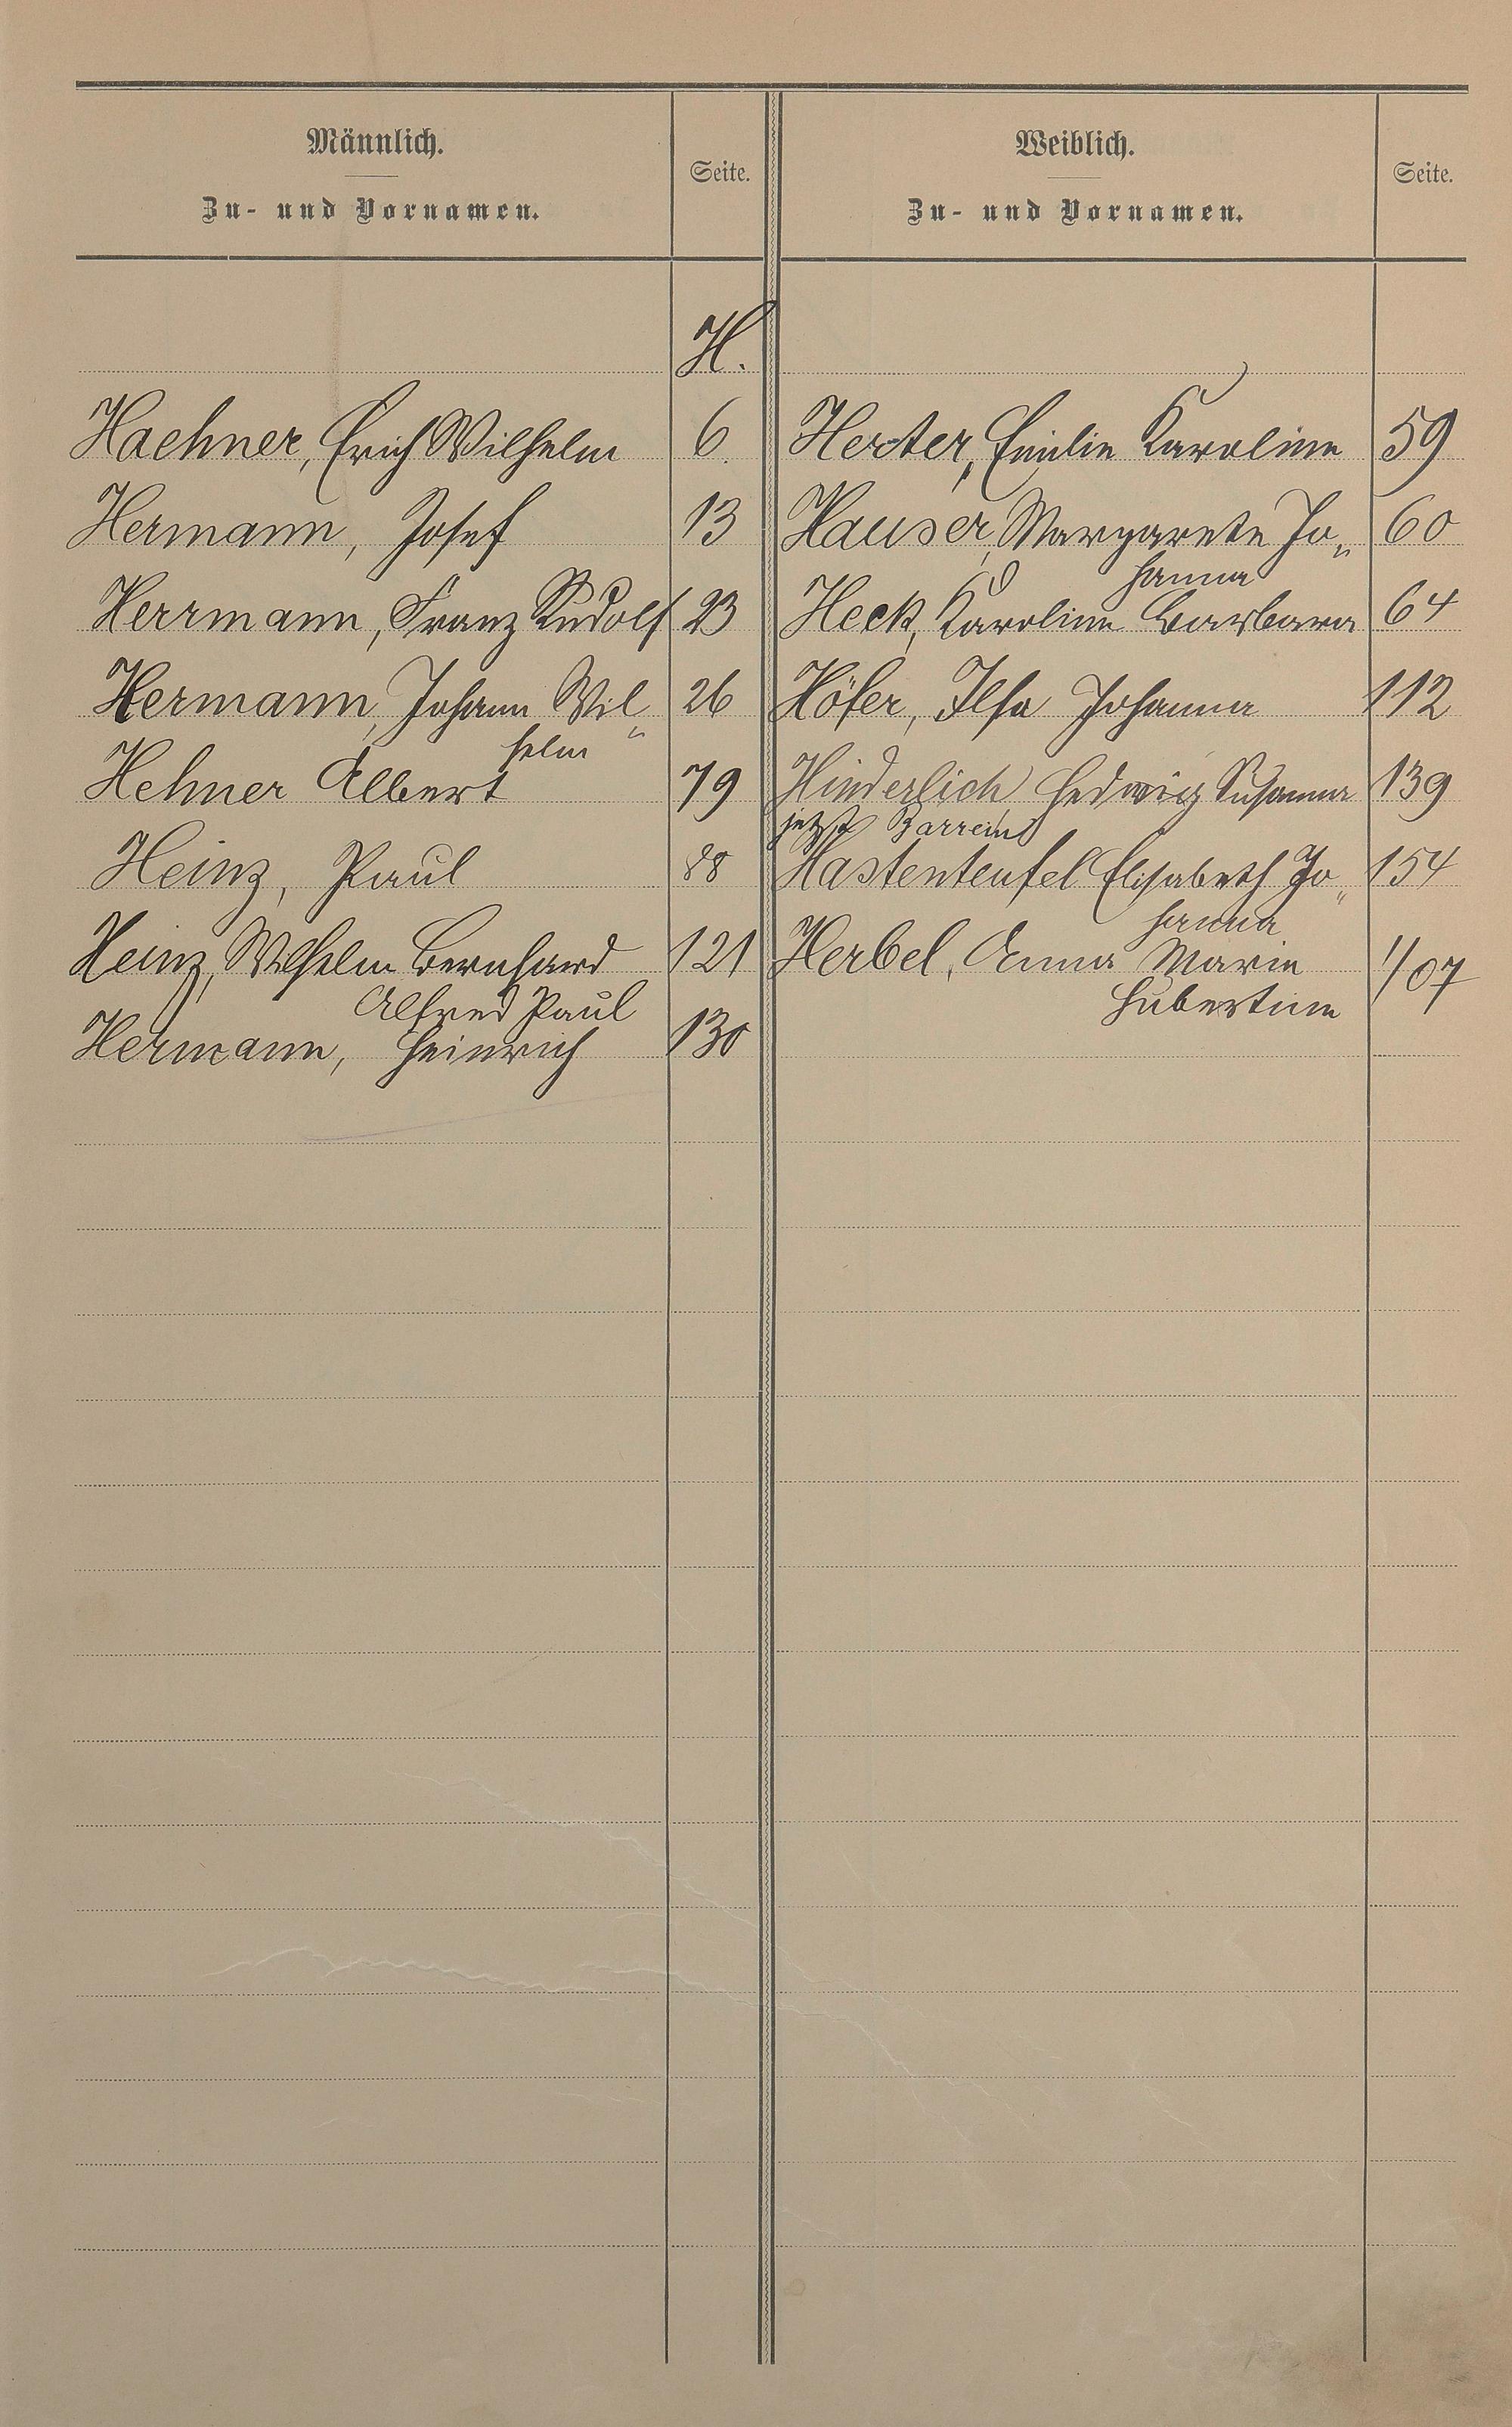 Männlich.
Zu- und Vornamen.
Seite.
Weiblich.
Zu- und Vornamen.
Seite.
H.
Haehner, Erich Wilhelm 6.
Hermann, Josef 13
Herrmann, Franz Rudolf 23
Hermann, Johann Wil„
helm 26
Hehner Albert 79
Heinz, Paul 88
Heinz, Wilhelm Bernhard 121
Alfred Paul
Hermann, Heinrich 130
Herter, Emilie Karoline 59
Hauser, Margarete Jo„ 60
hanna
Heck, Karoline Barbara 64
Höfer, Ilse Johanna 112
Hinderlich Hedwig Susanna 139
jetzt
Hastenteufel Elisabeth Jo„ 154
hanna
Herbel, Anna Marie 1/07
Hubertine